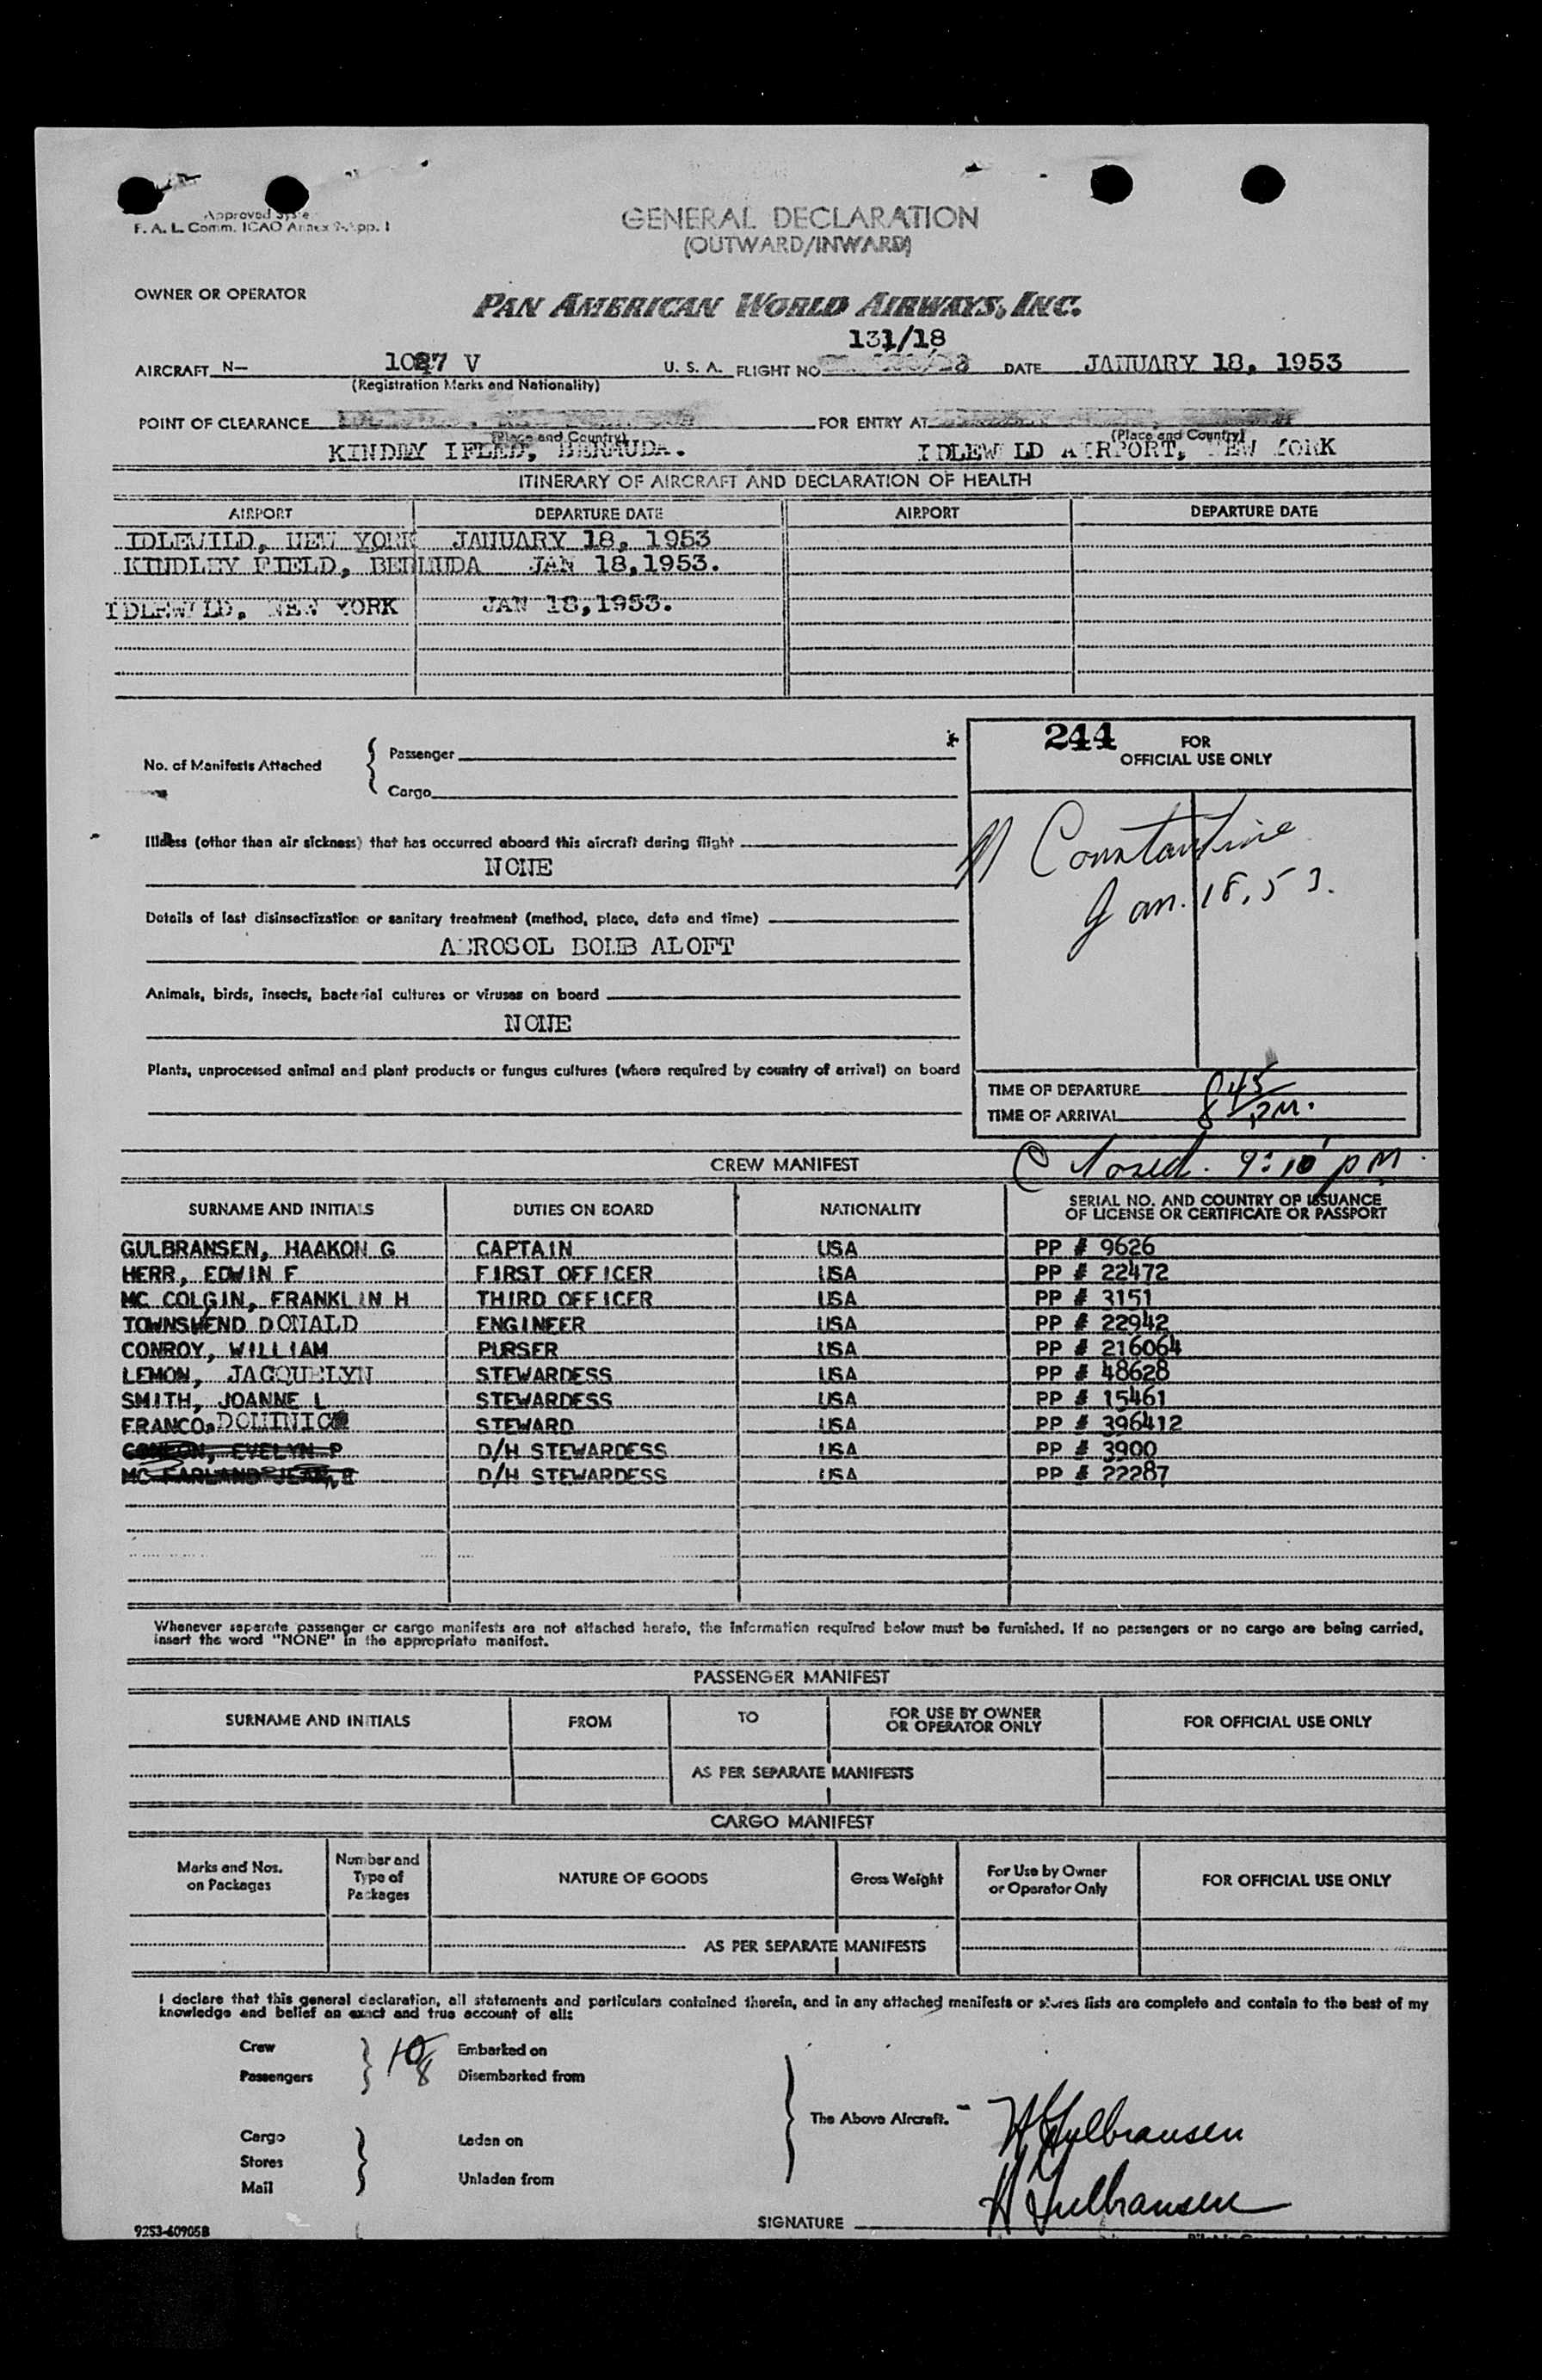 Approved Syste
F. A. L. Comm. ICAO Annex 9-App. 1
GENERAL DECLARATION
(OUTWARD/INWARD)
OWNER OR OPERATOR
PAN AMERICAN WORLD AIRWAYS, INC.
131/18
AIRCRAFT N- 1027 V U. S. A. FLIGHT NO. DATE JANUARY 18, 1953
(Registration Marks and Nationality)
POINT OF CLEARANCE FOR ENTRY AT
(Place and Country) (Place and Country)
KINDEY IFLED, BERMUDA. IDLEWILD AIRPORT, NEW YORK
ITINERARY OF AIRCRAFT AND DECLARATION OF HEALTH
AIRPORT DEPARTURE DATE AIRPORT DEPARTURE DATE
IDLEWILD, NEW YORK JANUARY 18, 1953
KINDLEY FIELD, BERMUDA JAN 18,1953.
IDLEWILD, NEW YORK JAN 18,1953.
244 FOR
OFFICIAL USE ONLY
No. of Manifests Attached
Passenger
Cargo
Constantine
Jan. 18, 53.
Illness (other than air sickness) that has occurred aboard this aircraft during flight
NONE
Details of last disinsectization or sanitary treatment (method, place, date and time)
AEROSOL BOMB ALOFT
Animals, birds, insects, bacterial cultures or viruses on board
NONE
Plants, unprocessed animal and plant products or fungus cultures (where required by country of arrival) on board
TIME OF DEPARTURE
TIME OF ARRIVAL 8 45/PM.
Closed. 9:10 pM.
CREW MANIFEST
SURNAME AND INITIALS DUTIES ON BOARD NATIONALITY SERIAL NO. AND COUNTRY OF ISSUANCE
OF LICENSE OR CERTIFICATE OR PASSPORT
GULBRANSEN, HAAKON G CAPTAIN USA PP # 9626
HERR, EDWIN F FIRST OFFICER USA PP # 22472
MC COLGIN, FRANKLIN H THIRD OFFICER USA PP # 3151
TOWNSHEND DONALD ENGINEER USA PP # 22942
CONROY, WILLIAM PURSER USA PP # 216064
LEMON, JACQUELYN STEWARDESS USA PP # 48628
SMITH, JOANNE L STEWARDESS USA PP # 15461
FRANCO, DOMINIC STEWARD USA PP # 396412
EVELYN P D/H STEWARDESS USA PP # 3900
MC FARLAND JEAN D/H STEWARDESS USA PP # 22287
Whenever separate passenger or cargo manifests are not attached hereto, the information required below must be furnished. If no passengers or no cargo are being carried,
insert the word "NONE" in the appropriate manifest.
PASSENGER MANIFEST
SURNAME AND INITIALS FROM TO FOR USE BY OWNER
OR OPERATOR ONLY FOR OFFICIAL USE ONLY
AS PER SEPARATE MANIFESTS
CARGO MANIFEST
Marks and Nos.
on Packages Number and
Type of
Packages NATURE OF GOODS Gross Weight For Use by Owner
or Operator Only FOR OFFICIAL USE ONLY
AS PER SEPARATE MANIFESTS
I declare that this general declaration, all statements and particulars contained therein, and in any attached manifests or stores lists are complete and contain to the best of my
knowledge and belief an exact and true account of all:
Crew
Passengers
10/8
Embarked on
Disembarked from
Cargo
Stores
Mail
Laden on
Unladen from
The Above Aircraft.
H Gulbransen
H Gulbransen
SIGNATURE
9253-60905B